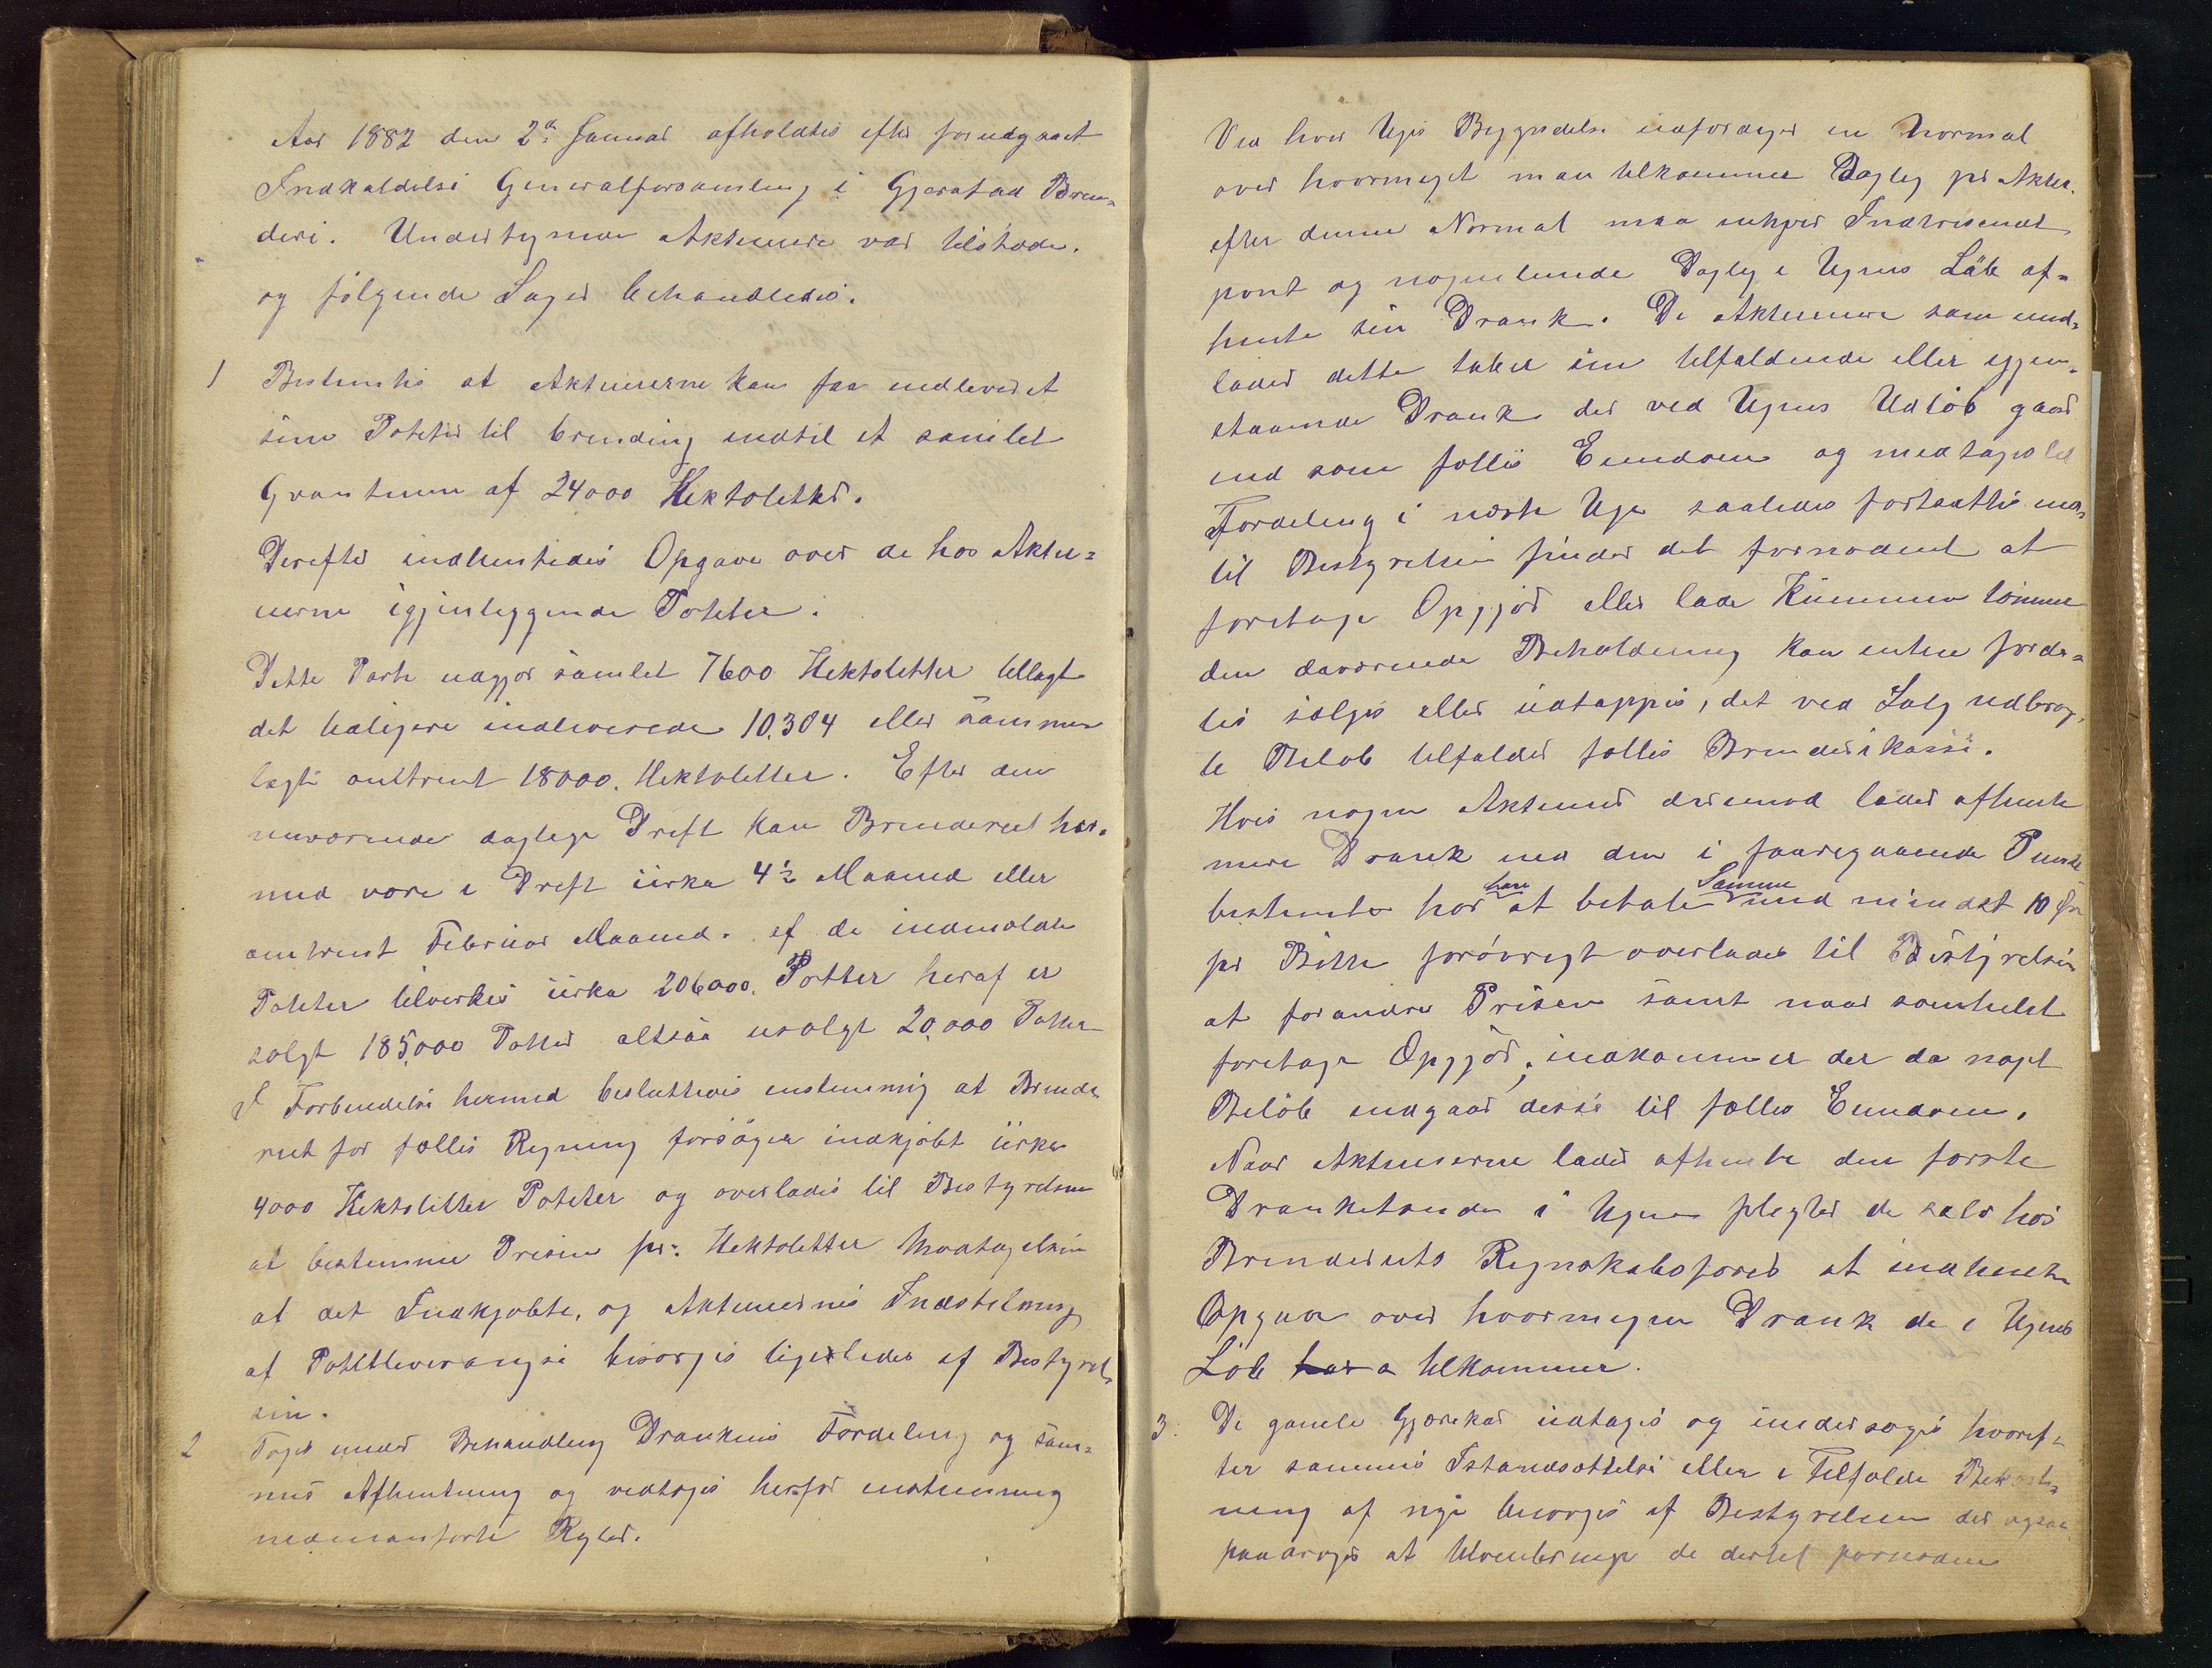 Aar 1882 den 2d Januar afholdtes efter forudgaaet
Indkaldelse Generalforsamling i Gjerstad Bren-
deri. Undertegnede Aktieeiere var tilstæde.
og følgende Sager behandledes.
1 Bestemtes at Aktieeierne kan faa indleveret
sine Poteter til brending indtil et samlet
Qvantum af 24000 Hektoletter.
Derefter indhentedes Opgave over de hos Aktie-
eierne igjenliggende Poteter.
Dette Parti udgjør samlet 7600 Hektoletter tillagt
det tidligere indleverede 10,304 eller sammen
lagt omtrent 18000. Hektoletter. Efter den
nuværende daglige Drift kan Brenderiet her-
med være i Drift cirka 4½ Maaned eller
omtrent Februar Maaned. af de indmeldte
Poteter tilvirkes cirka 206000. Potter heraf er
solgt 185,000 Potter altsaa usolgt 20,000 Potter
I Forbindelse hermed besluttedes enstemmig at Brende-
riet for fælles Regning forsøger indkjøbt cirka
4000 Hektolitter Poteter og overlades til Bestyrelsen
at bestemme Prisen pr. Hektoletter Modtagelsen
af det Indkjøbte, og Aktieeiernes Indstilning
af Potetleverangse besørges ligeledes af Bestyrel-
sen.
2 Toges under Behandling Drankens Fordeling og sam-
mes Afhentning og vedtoges herfor enstemmig
nedenanførte Regler.
Ved hver Uges Begyndelse udfærdiges en Normal
over hvormeget man tilkommer Daglig pr Aktie.
efter denne Normal maa enhver Indtresenet
pent og nogenlunde Daglig i Ugens Løb af-
hente sin Drank. De Aktieeiere som und-
lader dette taber sin tilfaldende eller igjen-
staaende Drank der ved Ugens Udløb gaar
ind som fælles Eiendom og medtages til
Fordeling i næste Uge saaledes fortsættes ind-
til Bestyrelsen finder det fornødent at
foretage Opgjør eller lade Kummen tømme
den daværende Beholdning kan enten forde-
les sælges eller udtappes, det ved Salg udbrag-
te Beløb tilfalder fælles Brenderikasse.
Hvis nogen Aktieeier derimod lader afhente
mere Drank end den i foregaaende Punkt
bestemte har han at betale Samme med mindst 10 Øre
pr Bøtte forøvrigt overlades til Bestyrelsen
at forandre Prisen samt naar somhelst
foretage Opgjør; indkommer der da noget
Beløb indgaar disse til fælles Eiendom.
Naar Aktieeierne lader afhente den første
Dranketønde i Ugen pligter de selv hos
Brenderiets Regnskabsfører at indhente
Opgave over hvormegen Drank de i Ugens
Løb tilkommer.
3. De gamle Gjærekar udtages og undersøges hvoref-
ter sammes Istandsættelse eller i Tilfælde Bekost-
ning af nye besørges af Bestyrelsen der ogsaa
paalægges at tilveiebringe de dertil fornødne